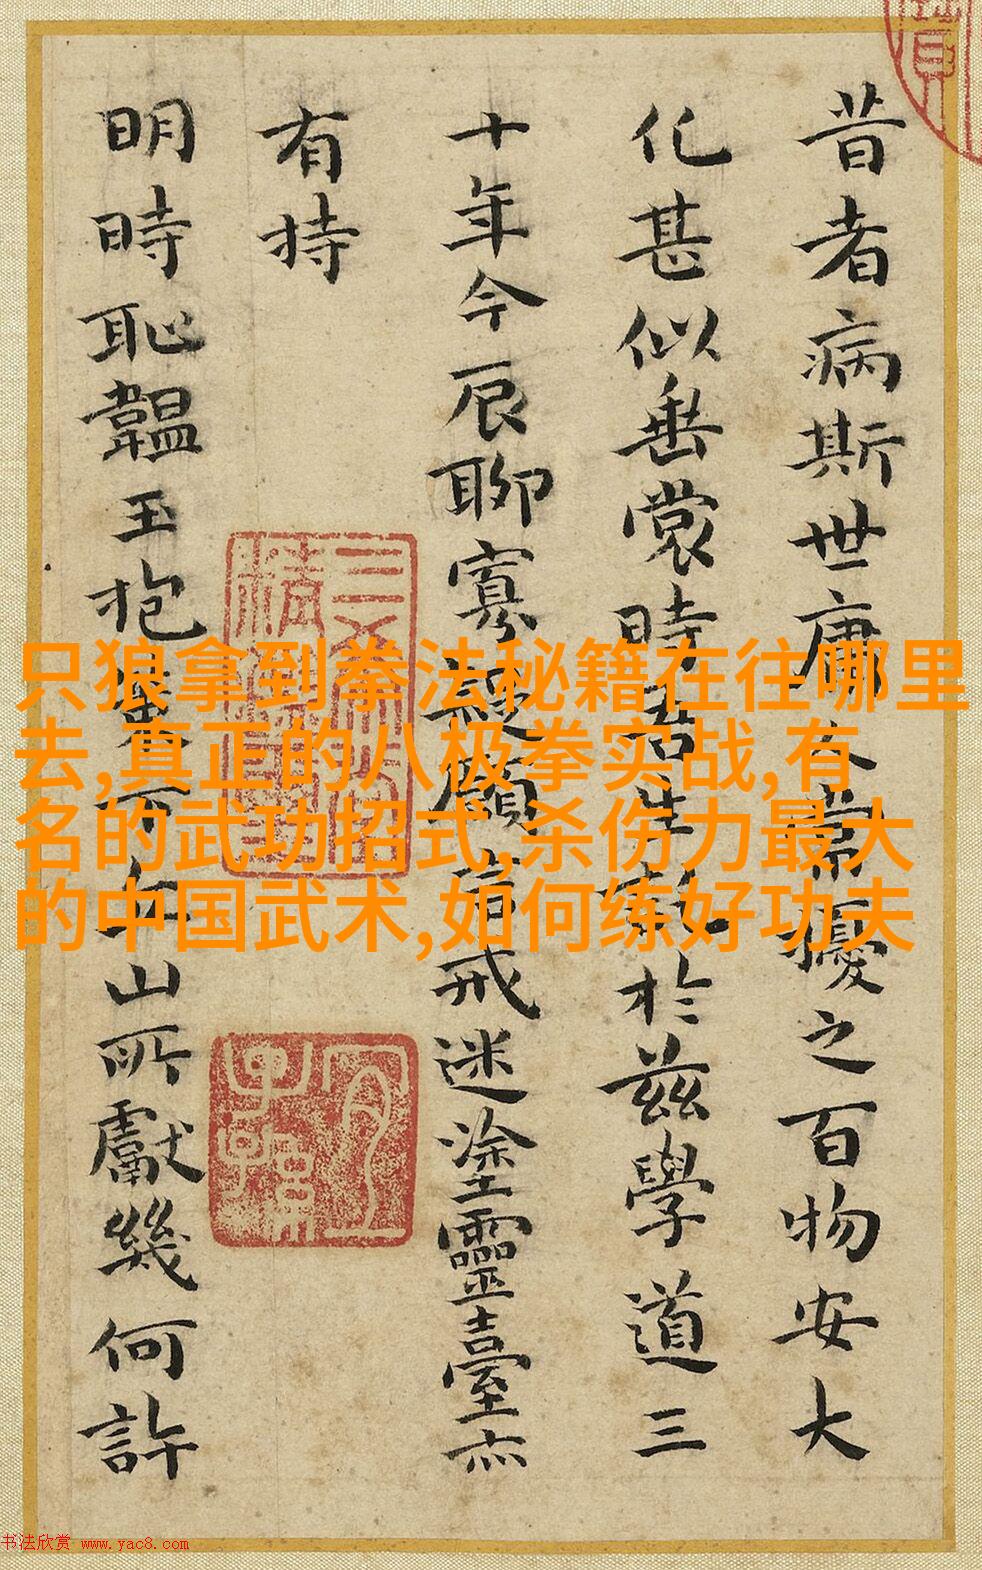 昔者病斯世庸人常擾之百物安大
化甚似垂裳時君生於茲學道三
十年今辰聊寡顧省戒迷塗靈臺亦
有持
明時恥韞玉抱山所獻幾何許
只狼拿到拳法秘籍在往哪里
去,真正的八极拳实战,有
名的武功招式,杀伤力最大
的中国武术,如何练好功夫
书法欣赏 www.yac8.com